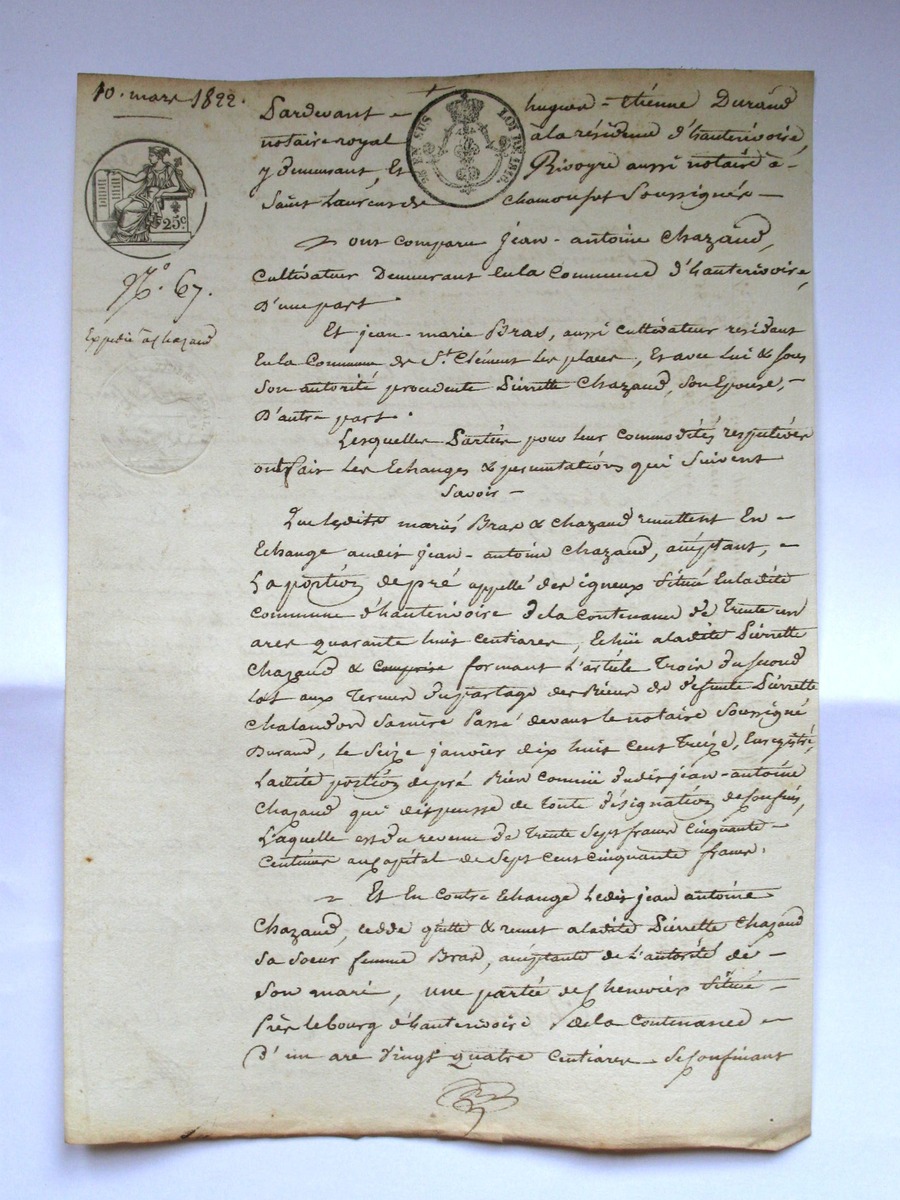 10. mars 1822.
Pardevant - hugues - étienne Durand
notaire royal à la résidence d'hauterivoire,
y Demeurant, Et Rivoyre aussi notaire à -
Saint Laurent de chamousset Soussignés -
25 EN SUS LOI DE 1816.
25c.
N.o 67.
Expédié à chazaud
ont comparu jean - antoine Chazaud,
Cultivateur Demeurant En la Commune d'hauterivoire,
D'une part.
Et jean - marie Bras, aussi cultivateur résidant
En la Commune de St. Clément les places, Et avec Lui & sous
Son autorité procédente Pierrette Chazaud, Son Epouse, -
D'autre part.
Lesquelles Parties pour leur commodités respectives
ont fait les Echanges & permutations qui Suivent
Savoir -
Que lesdits mariés Bras & Chazaud remettent En -
Echange audit jean - antoine Chazaud, acceptant, -
La portion de pré appellé des igneux Situé En ladite
Commune d'hauterivoire de la Contenance de Trente un
ares quarante huit centiares, Echue à ladite Pierrette
Chazaud & comprise formant L'article Trois du second
lot aux Termes du partage des Biens de défunte Pierrette
Chalandon Sa mère Passé devant le notaire Soussigné
Durand, le Seize janvier dix huit cent Treize, Enregistré,
Ladite portion de pré Bien connue dudit jean - antoine
Chazaud qui dispense de Toute désignation de Confins,
Laquelle est du revenu de Trente Sept francs Cinquante -
Centimes au Capital de Sept cent cinquante francs.
Et En Contre Echange Ledit jean antoine
Chazaud, cedde quitte & remet à ladite Pierrette Chazaud
Sa soeur femme Bras, acceptante de L'autorité de -
Son mari, une partie de Chenevier Situé -
Près le bourg d'hauterivoire de la Contenance -
D'un are Vingt quatre Centiares Se Confinant